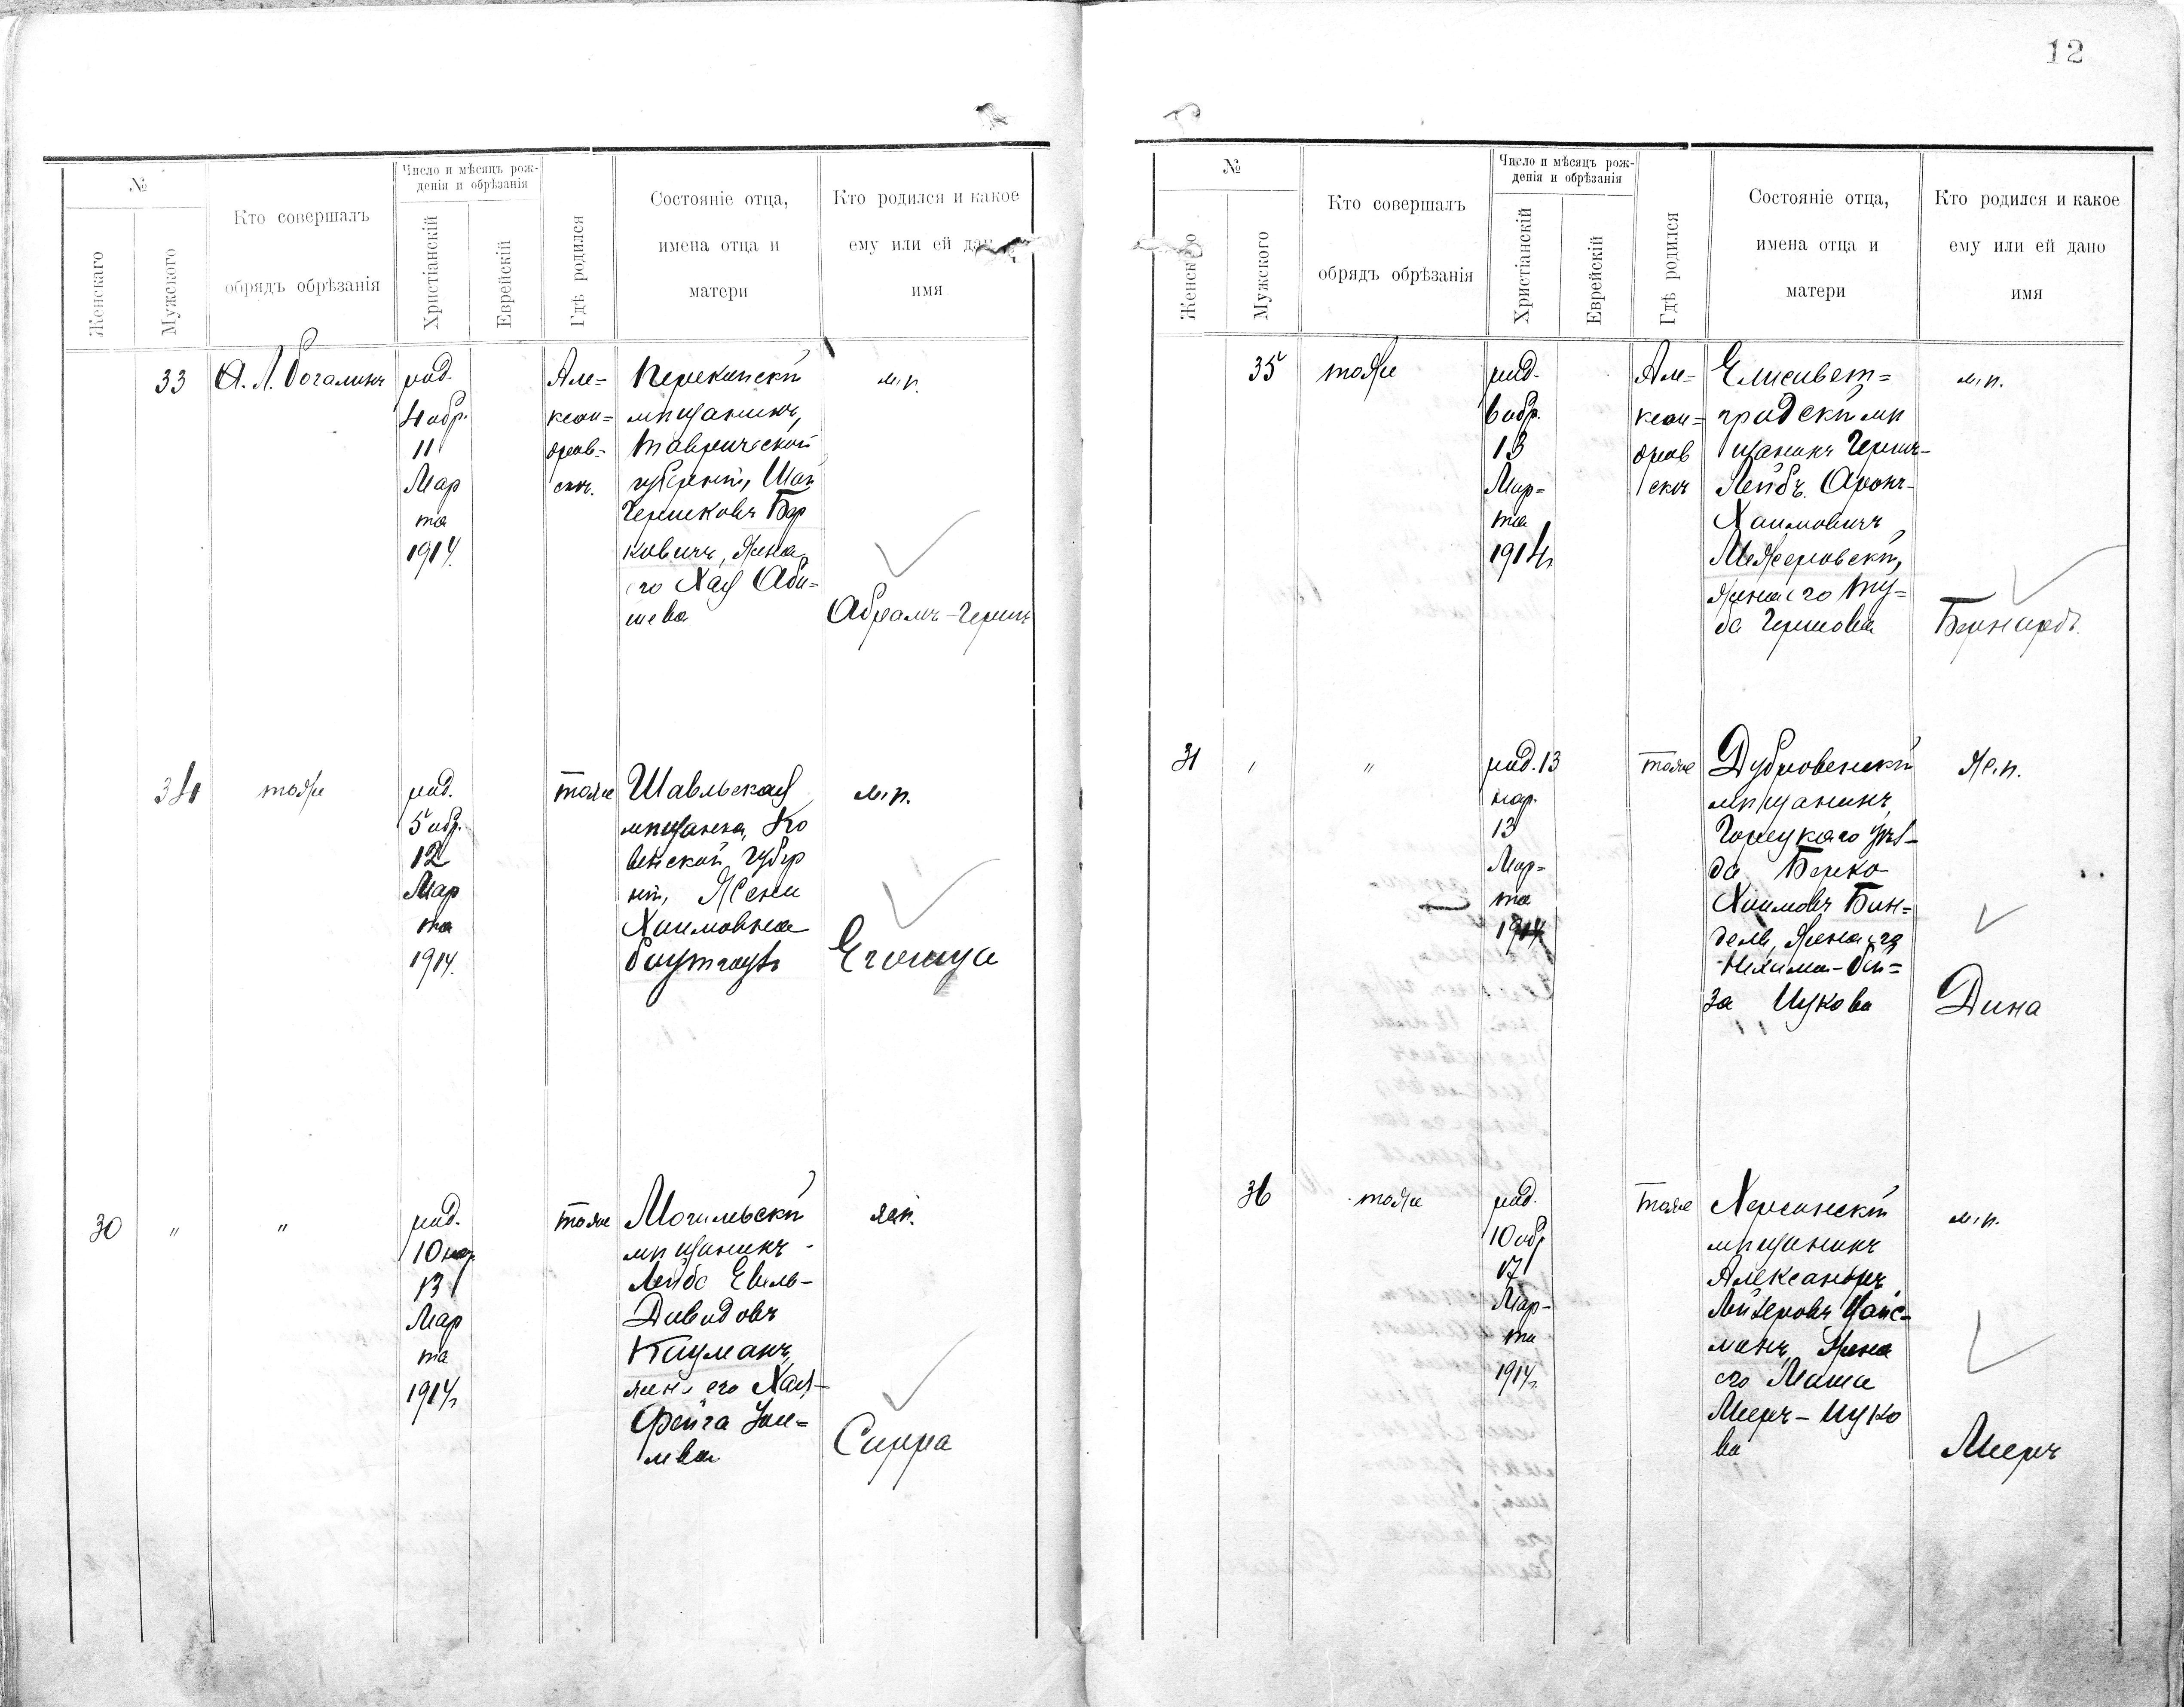 12
№
Женскаго
Мужского
Кто совершалъ
обрядъ обрѣзанія
Число и мѣсяцъ рож-
денія и обрѣзанія
Христіанскій
Еврейскій
Гдѣ родился
Состояніе отца,
имена отца и
матери
Кто родился и какое
ему или ей дано
имя
33
А. Л.
род.
4 обр.
11
Мар
та
1914.
Але=
ксан=
дров=
ск.
Перекопскій
мѣщанинъ,
Таврической
губерніи,
Гершковъ Бер
ковичъ, жена
его Хая Аби=
шева
м.п.
Абрамъ-Гершъ
34
тоже
род.
5 обр.
12
Мар
та
1914.
тоже
Шавльская
мѣщанка, Ко
венской губер
ніи, Жени
Хаимовна
м.п.
30
"
"
род.
10 нар.
13
Мар
та
1914г.
тоже
Могилевскій
мѣщанинъ
Лейба
Давидовъ
жена его Хая-
Фейга
ж.п.
Сирра
№
Женскаго
Мужского
Кто совершалъ
обрядъ обрѣзанія
Число и мѣсяцъ рож-
денія и обрѣзанія
Христіанскій
Еврейскій
Гдѣ родился
Состояніе отца,
имена отца и
матери
Кто родился и какое
ему или ей дано
имя
35
тоже
род.
6 обр.
13
Мар=
та
1914г.
Але=
ксан=
дров
ск
Елисавет=
градскій мѣ
щанинъ Гершъ-
Лейбъ Аронъ-
Хаимовичъ
Межеровскій,
жена его
Гершова
м.п.
Бернардъ.
31
"
"
род. 13
нар.
13
Мар=
та
1914
тоже
Дубровенскій
мѣщанинъ
Горецкаго уѣз-
да Берко
Хаимовъ Бин=
дель, жена его
Нехама-
за Ицкова
ж.п.
Дина
36
тоже
род.
10 обр
17
Мар-
та
1914г.
тоже
Херсонскій
мѣщанинъ
Александръ
Лейзеровъ
манъ, жена
его Маша
Мееръ-Ицко
ва
м.п.
Мееръ